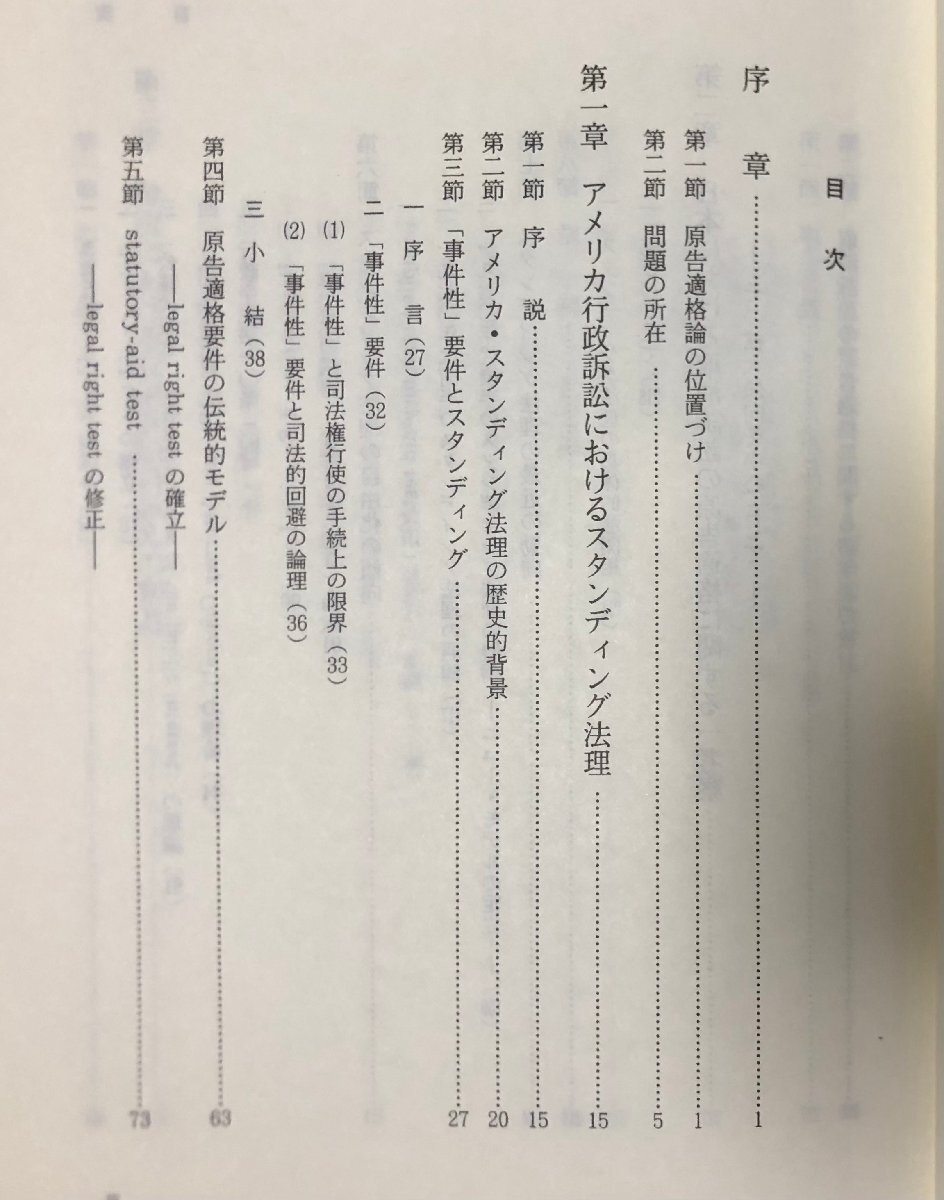 目次
序章……1
第一節 原告適格論の位置づけ……1
第二節 問題の所在……5
第一章 アメリカ行政訴訟におけるスタンディング法理……15
第一節 序説……15
第二節 アメリカ・スタンディング法理の歴史的背景……20
第三節 「事件性」要件とスタンディング……27
一 序言（27）
二 「事件性」要件（32）
(1) 「事件性」と司法権行使の手続上の限界（33）
(2) 「事件性」要件と司法的回避の論理（36）
三 小結（38）
第四節 原告適格要件の伝統的モデル……63
――legal right test の確立――
第五節 statutory-aid test……73
――legal right test の修正――